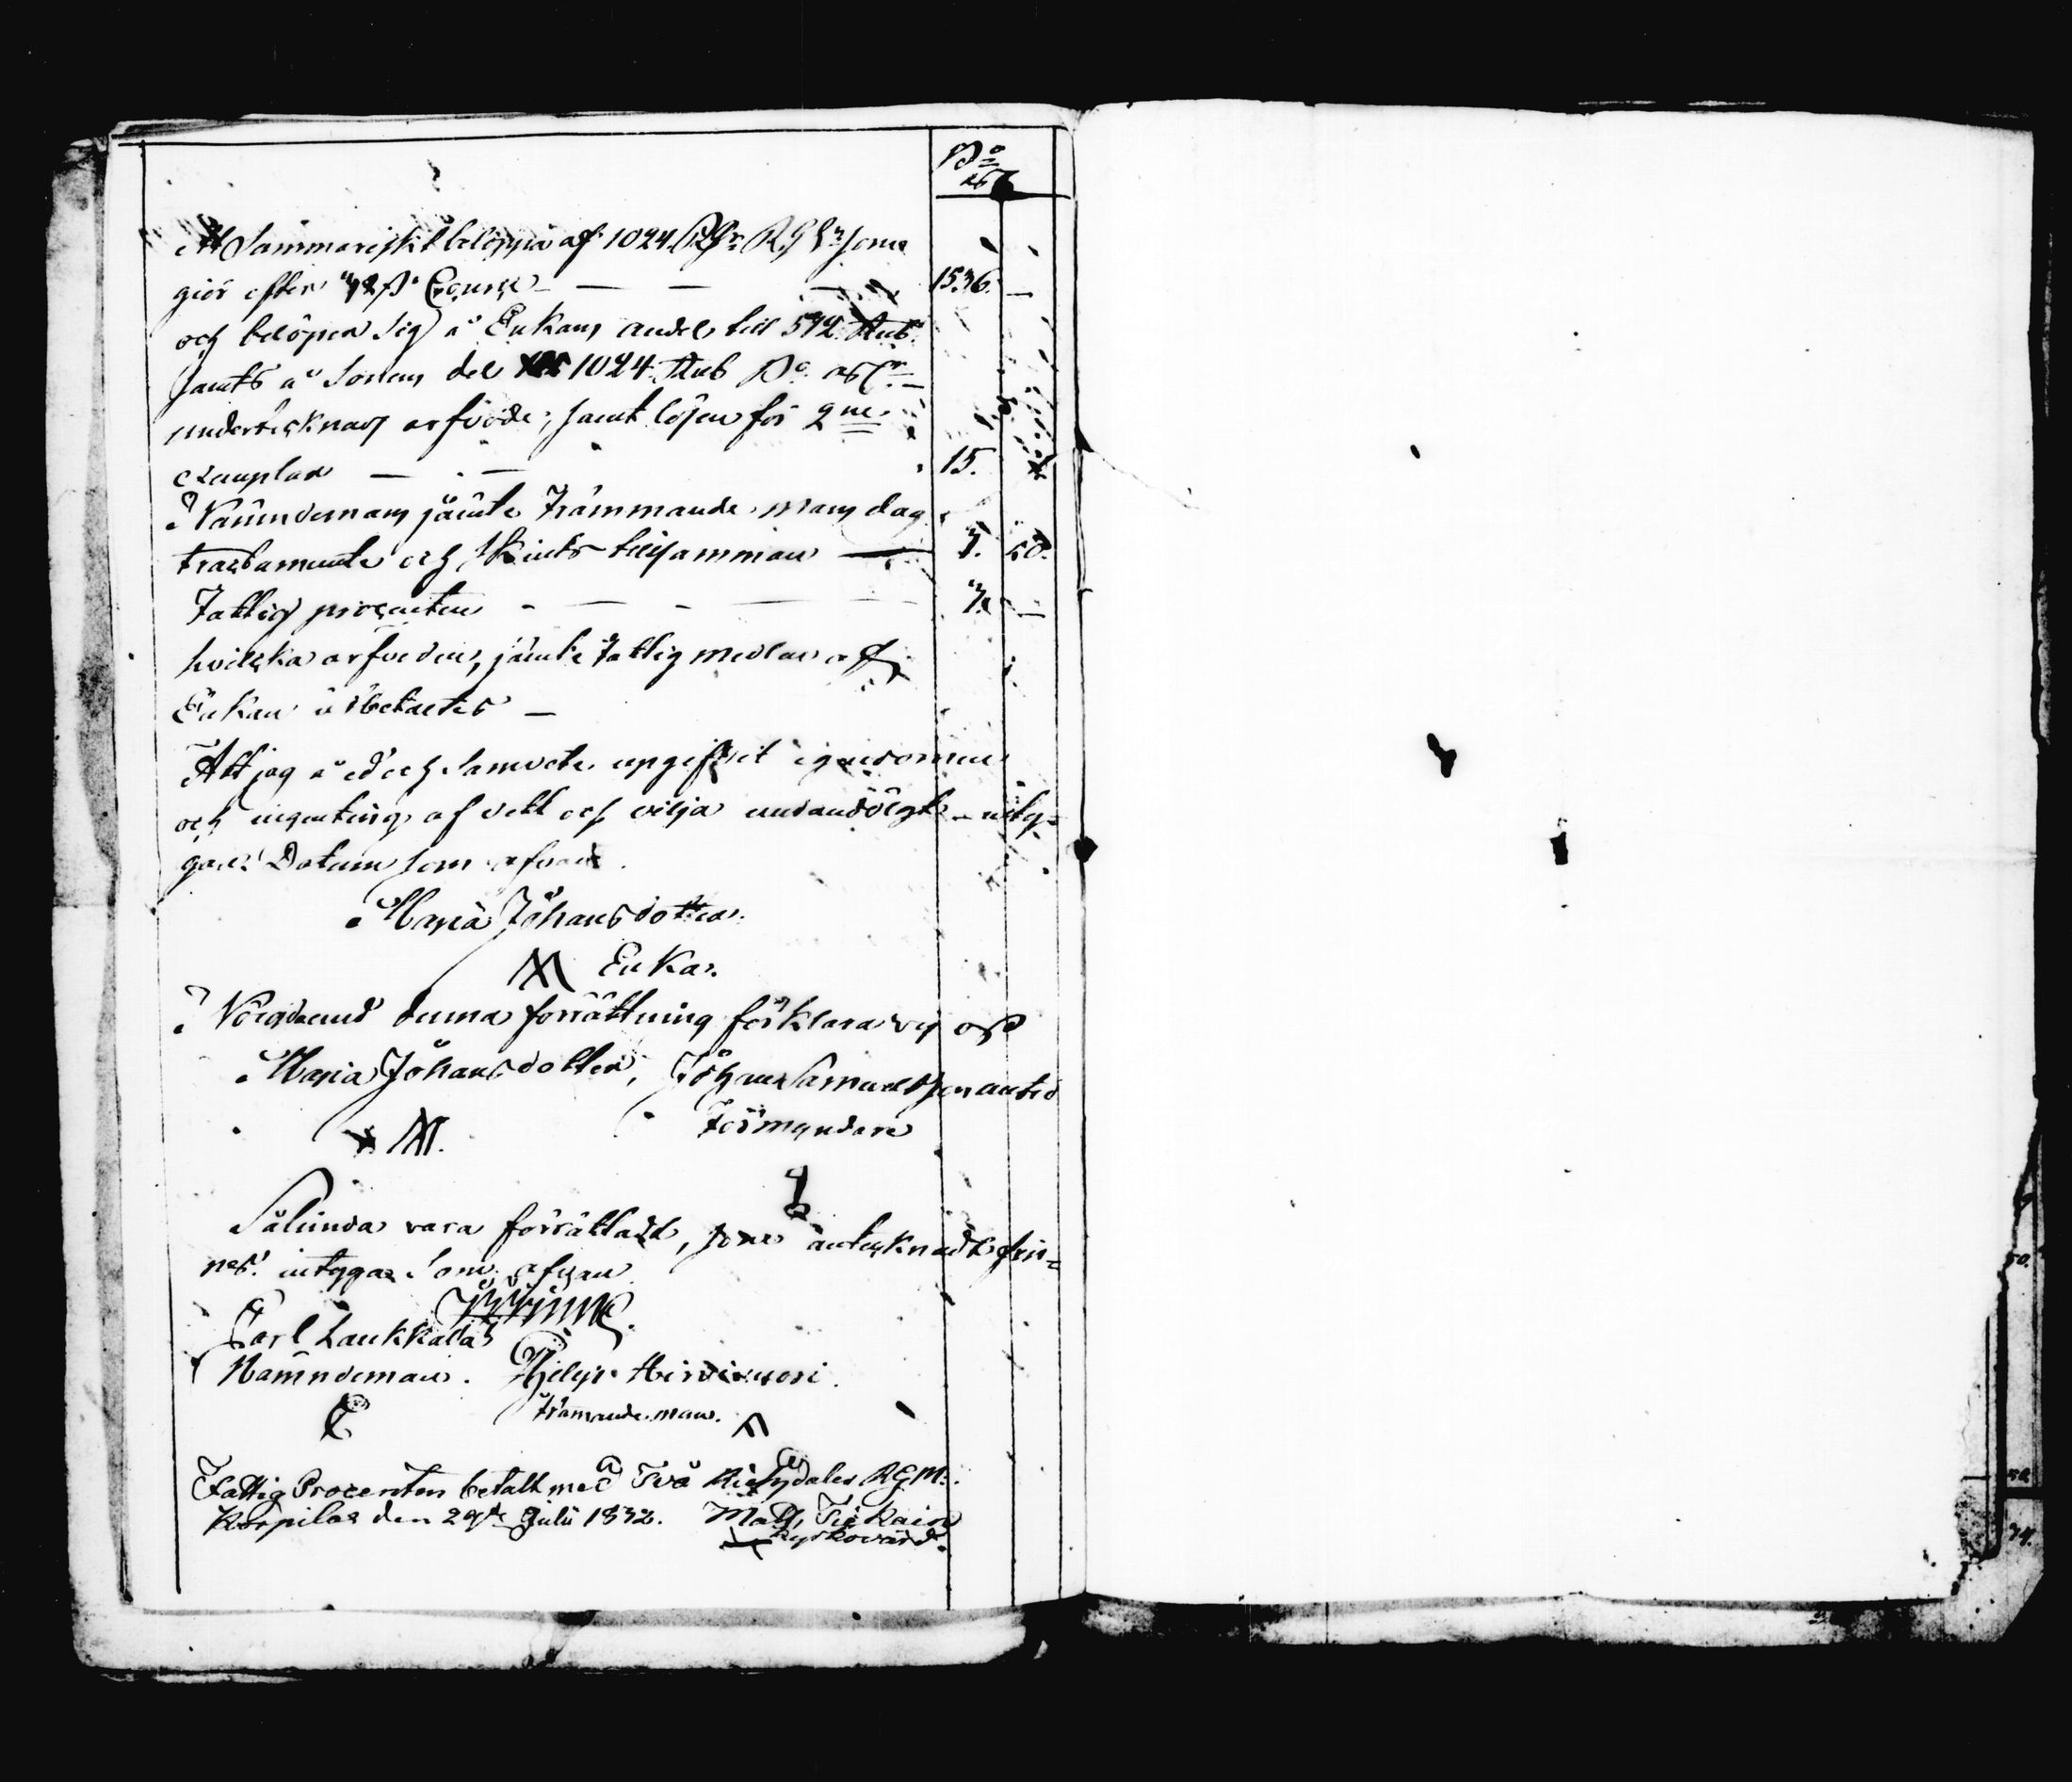 Bo
Ass
At Sammariskt belöppa af 1024 Rdr RGS som
giör efter 72 β Course — — — 1536. —
och belöper sig å Enkans andel till 512 Rub
samt å Sonens del 1024 Rub Bo ass
undertecknas arfvode, samt lösen för 2ne
exemplar — — 15.
Nämndemans jämte Främmande mans dag
tractamente och skiuts tillsamman — 7. 50.
Fattig procenten - — - — — 3. —
hvilcka arfvoden, jämte Fattig medlen af
Enkan är betaeter —
Att jag å ed och samvete upgifvit egendomen
och ingenting af vett och vilja undandölgt - inty-
gar: Datum som ofvan.
Maria Johansdotter
M Enka.
Nöigda med denna förrättning förklara vij oss
Maria Johansdotter, Johan Samuelsson antid
M. Förmyndare
Sålunda vara förrättadt, som antecknadt fin-
nes: intygar som ofvan
Carl Laukkala
Nämndeman. Philip Hirvinoori.
främmande man.
Fattig Procenten betalt med Två Riksdaler RGM:
Korpilax den 29de Julii 1832. Matts Tickain
Kyrkovärd.
50.
50.
74.